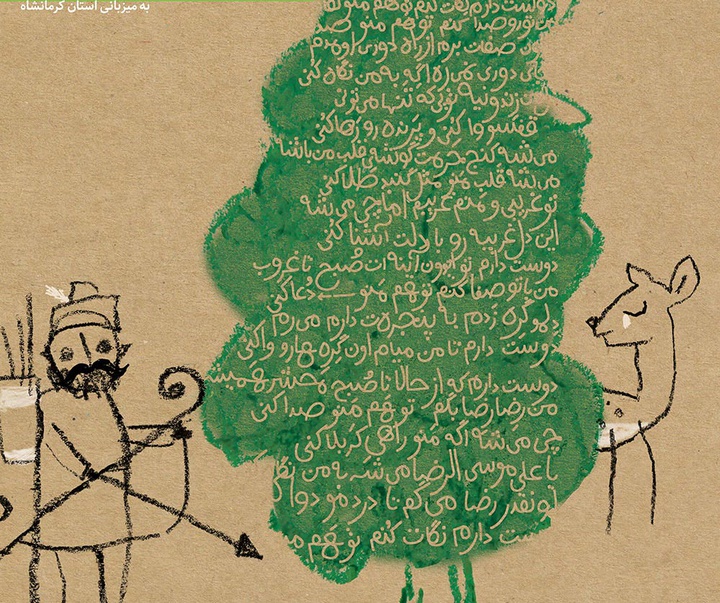 به میزبانی استان کرمانشاه
دوست دارم نگات کنم تو هم منو
من تو رو صدا کنم تو هم منو صدا
صفت برم از راه دوری اومدم
دوری نمیره اگه به من نگاه کنی
زندونیه تویی که تنها می‌تونی
قفسو وا کنی و پرنده رو رها کنی
می‌شه کنج حرمت گوشه‌ی قلب من باشه
می‌شه قلب منو مثل گنبد طلا کنی
تو غریبی و منم غریبم اما چی می‌شه
این دل غریبه رو با دلت آشنا کنی
دوست دارم تو ایوون آینه ات صبح تا غروب
من با تو صفا کنم تو هم منو دعا کنی
دلمو گره زدم به پنجرت دارم می‌رم
دوست دارم تا من میام اون گره‌هارو وا کنی
دوست دارم که از حالا تا صبح محشر همیشه
من رضا رضا بگم تو هم منو صدا کنی
چی می‌شه اگه منو راهی کربلا کنی
یا علی موسی الرضا می‌شه به من
اونقدر رضا می‌گم تا دردمو دوا
دوست دارم نگات کنم تو هم